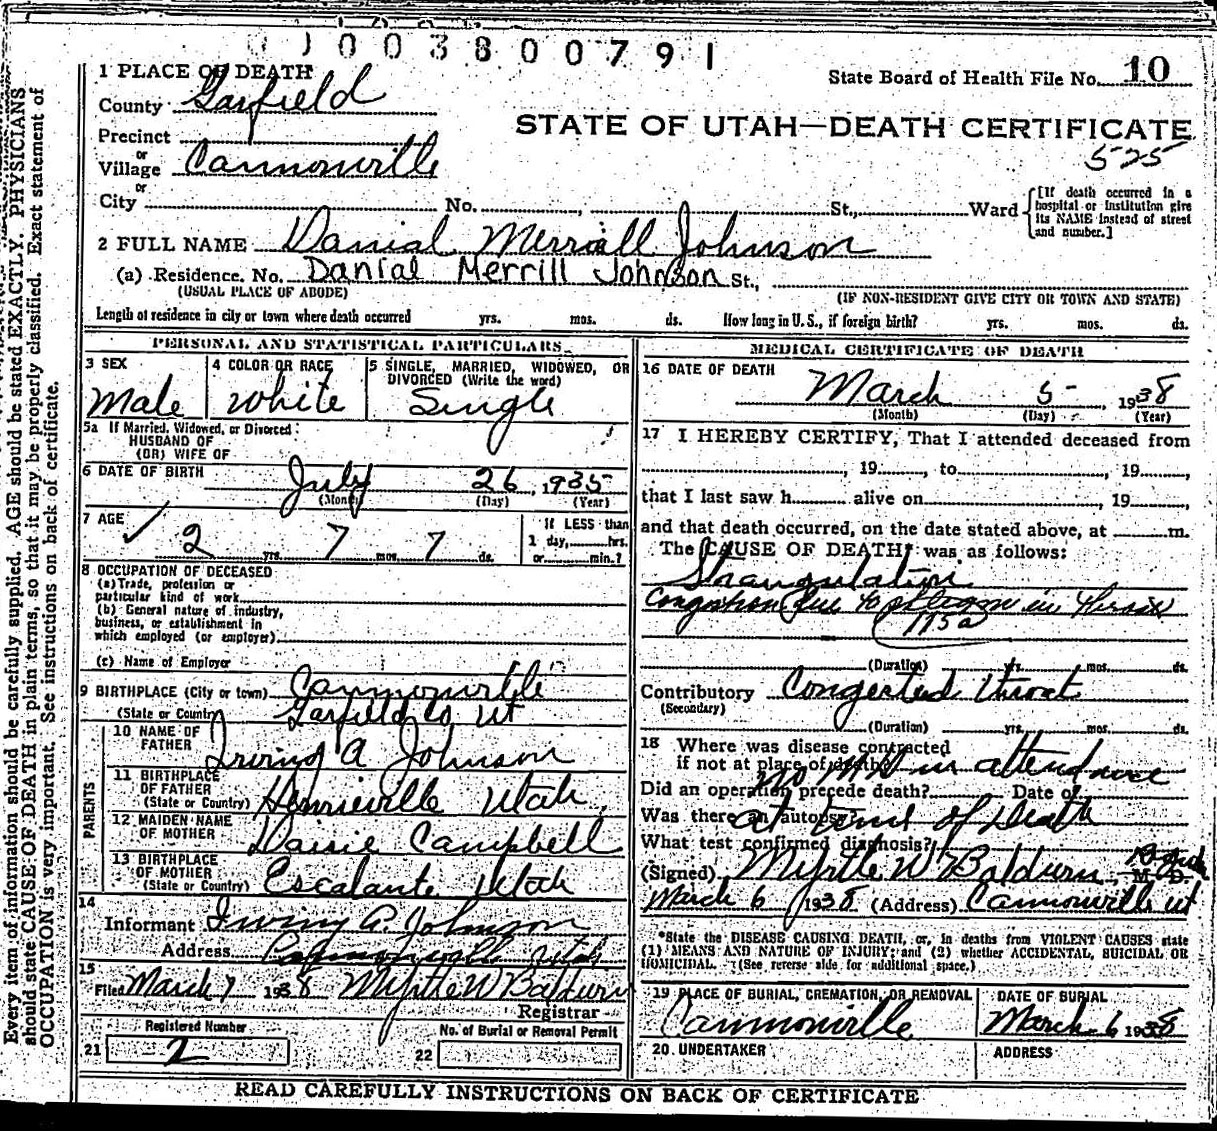 0 1 0 0 3 8 0 0 7 9 1
State Board of Health File No. 10
STATE OF UTAH—DEATH CERTIFICATE
525
1 PLACE OF DEATH
County Garfield
Precinct
or
Village Cannonville
or
City No. , St., Ward
[If death occurred in a hospital or institution give its NAME instead of street and number.]
2 FULL NAME Danial Merrill Johnson
(a) Residence. No. Danial Merrill Johnson St.,
(USUAL PLACE OF ABODE) (IF NON-RESIDENT GIVE CITY OR TOWN AND STATE)
Length of residence in city or town where death occurred yrs. mos. ds. How long in U. S., if foreign birth? yrs. mos. ds.
PERSONAL AND STATISTICAL PARTICULARS
3 SEX
Male
4 COLOR OR RACE
White
5 SINGLE, MARRIED, WIDOWED, OR
DIVORCED (Write the word)
Single
5a If Married, Widowed, or Divorced
HUSBAND OF
(OR) WIFE OF
6 DATE OF BIRTH July 26, 1935
(Month) (Day) (Year)
7 AGE 2 yrs. 7 mos. 7 ds.
If LESS than
1 day, hrs.
or min.?
8 OCCUPATION OF DECEASED
(a) Trade, profession or
particular kind of work
(b) General nature of industry,
business, or establishment in
which employed (or employer)
(c) Name of Employer
9 BIRTHPLACE (City or town) Cannonville
(State or Country) Garfield Co Ut
PARENTS
10 NAME OF
FATHER Irving A Johnson
11 BIRTHPLACE
OF FATHER
(State or Country) Henrieville Utah
12 MAIDEN NAME
OF MOTHER Daisie Campbell
13 BIRTHPLACE
OF MOTHER
(State or Country) Escalante Utah
14
Informant Irving A. Johnson
Address Cannonville Utah
15
Filed March 7 1938 Myrtle W Baldwin
Registrar
Registered Number
21 2
No. of Burial or Removal Permit
22
MEDICAL CERTIFICATE OF DEATH
16 DATE OF DEATH
March 5, 1938
(Month) (Day) (Year)
17 I HEREBY CERTIFY, That I attended deceased from
, 19 , to , 19 ,
that I last saw h alive on , 19 ,
and that death occurred, on the date stated above, at m.
The CAUSE OF DEATH* was as follows:
Strangulation
Congestion due to phlegm in
115a
(Duration) yrs. mos. ds.
Contributory Congested throat
(Secondary)
(Duration) yrs. mos. ds.
18 Where was disease contracted
if not at place of death?
no M D in attendance
Did an operation precede death? Date of
Was there an autopsy?
at time of Death
What test confirmed diagnosis?
(Signed) Myrtle W Baldwin, M. D.
March 6 1938 (Address) Cannonville Ut
*State the DISEASE CAUSING DEATH, or, in deaths from VIOLENT CAUSES state
(1) MEANS AND NATURE OF INJURY; and (2) whether ACCIDENTAL, SUICIDAL OR
HOMICIDAL. (See reverse side for additional space.)
19 PLACE OF BURIAL, CREMATION, OR REMOVAL
Cannonville
DATE OF BURIAL
March 6 1938
20. UNDERTAKER
ADDRESS
READ CAREFULLY INSTRUCTIONS ON BACK OF CERTIFICATE
Every item of information should be carefully supplied. AGE should be stated EXACTLY. PHYSICIANS
should state CAUSE OF DEATH in plain terms, so that it may be properly classified. Exact statement of
OCCUPATION is very important. See instructions on back of certificate.